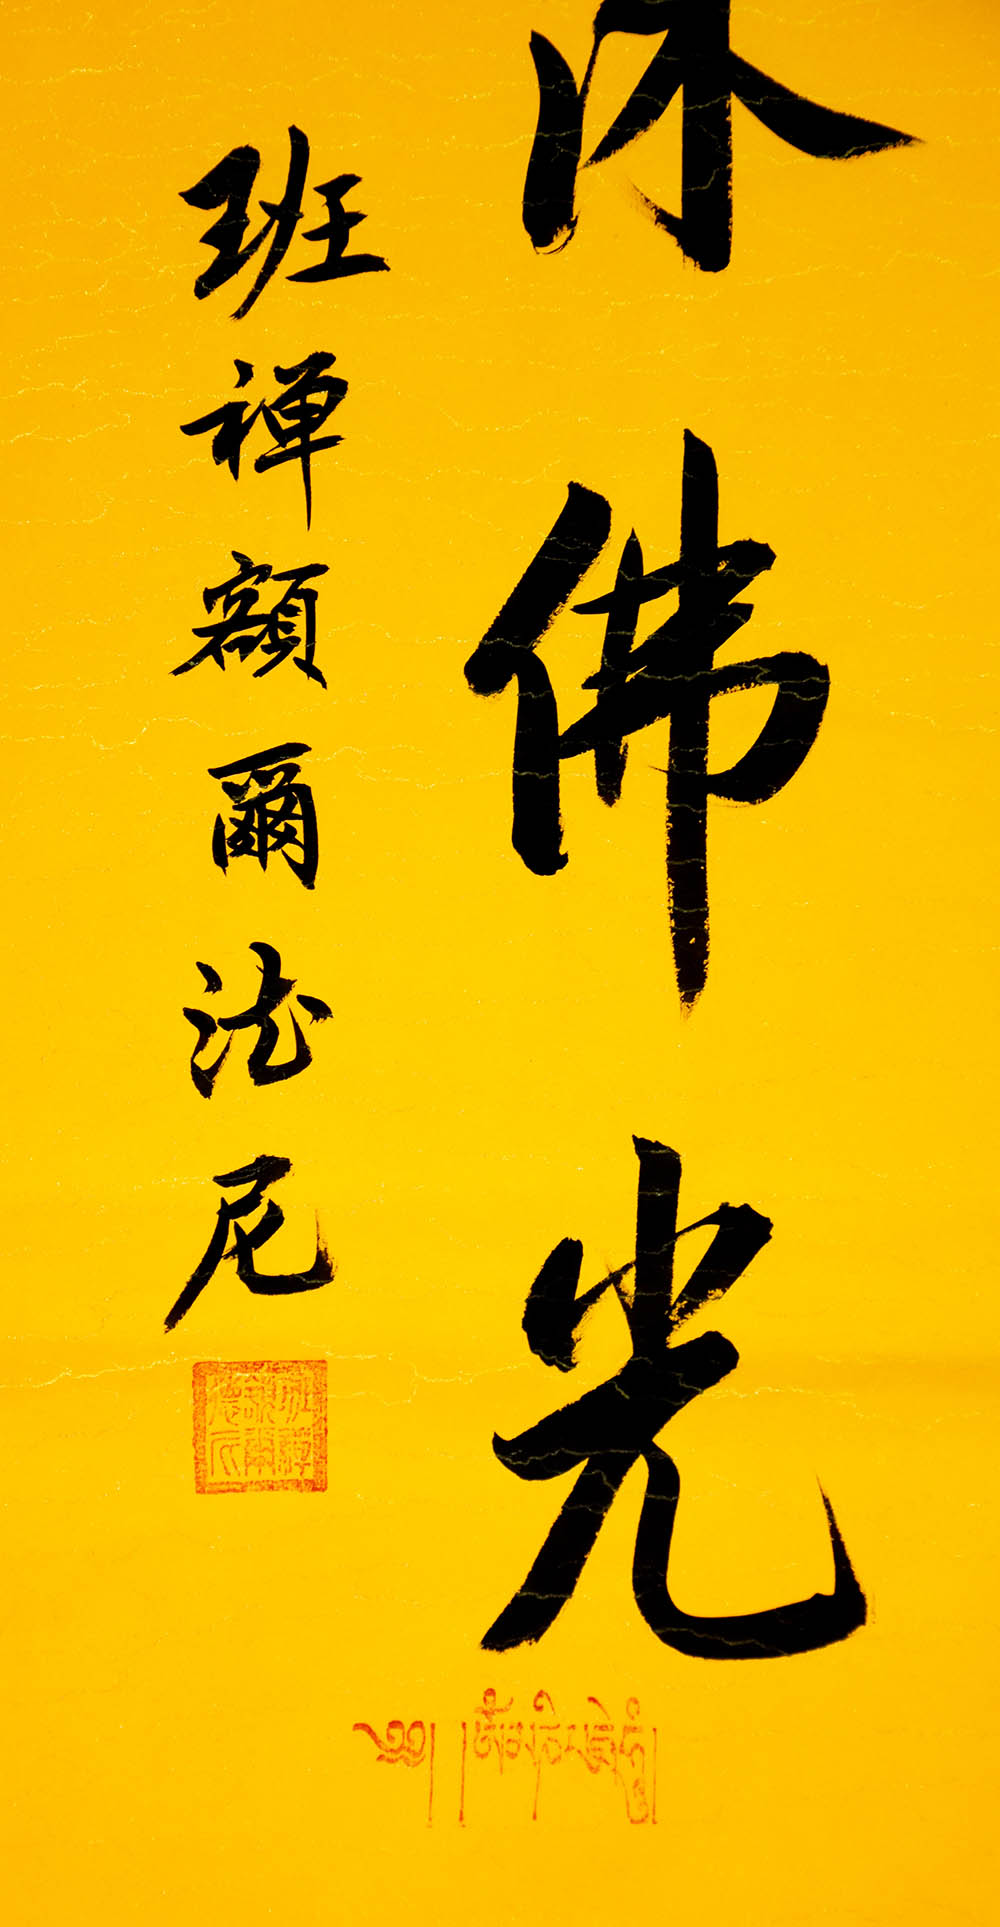 沐佛光
班禅額爾德尼
班禪額爾德尼
༄༅། །ཨོཾ་མ་ཎི་པདྨེ་ཧཱུྃ།